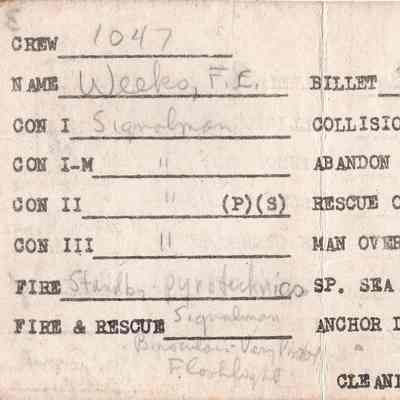 CREW 1047
NAME Weeks, F. E. BILLET
CON I Signalman COLLISIO
CON I-M " ABANDON
CON II " (P)(S) RESCUE
CON III " MAN OVER
FIRE Standby pyrotechnics SP. SEA
FIRE & RESCUE Signalman ANCHOR
Binoculars - Very Pistol
Flashlight
CLEANI